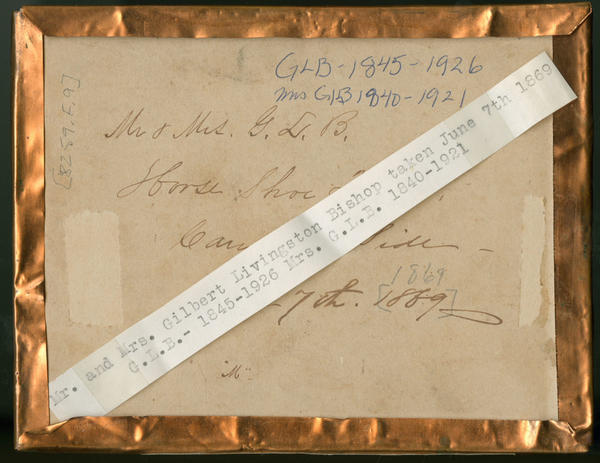 GLB - 1845 - 1926
Mrs GLB 1840 - 1921
[8259.F.9]
Mr & Mrs. G. L. B.
Horse Shoe
Side -
7th. [1869]
1869
"M"
Mr. and Mrs. Gilbert Livingston Bishop taken June 7th 1869
G.L.B.- 1845-1926 Mrs. G.L.B. 1840-1921